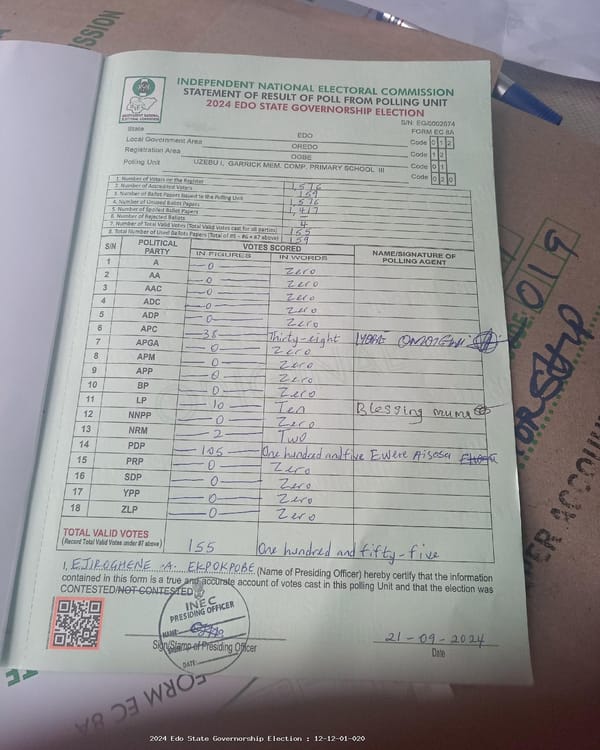 INDEPENDENT NATIONAL ELECTORAL COMMISSION
STATEMENT OF RESULT OF POLL FROM POLLING UNIT
2024 EDO STATE GOVERNORSHIP ELECTION
S/N: EG/0002674
FORM EC 8A
State EDO Code 0 1 2
Local Government Area OREDO Code 1 2
Registration Area OGBE Code 0 1
Polling Unit UZEBU I, GARRICK MEM. COMP. PRIMARY SCHOOL III Code 0 2 0
1. Number of Voters on the Register 1,576
2. Number of Accredited Voters 159
3. Number of Ballot Papers Issued to the Polling Unit 1,576
4. Number of Unused Ballot Papers 1,417
5. Number of Spoiled Ballot Papers —
6. Number of Rejected Ballots 4
7. Number of Total Valid Votes (Total Valid Votes cast for all parties) 155
8. Total Number of Used Ballots Papers (Total of #5 + #6 + #7 above) 159
S/N POLITICAL PARTY VOTES SCORED NAME/SIGNATURE OF POLLING AGENT
IN FIGURES IN WORDS
1 A 0 Zero
2 AA 0 Zero
3 AAC 0 Zero
4 ADC 0 Zero
5 ADP 0 Zero
6 APC 38 Thirty-eight
7 APGA 0 Zero
8 APM 0 Zero
9 APP 0 Zero
10 BP 0 Zero
11 LP 10 Ten Blessing
12 NNPP 0 Zero
13 NRM 2 Two
14 PDP 105 One hundred and five Ewere Aisosa
15 PRP 0 Zero
16 SDP 0 Zero
17 YPP 0 Zero
18 ZLP 0 Zero
TOTAL VALID VOTES
(Record Total Valid Votes under #7 above) 155 One hundred and fifty-five
I, EJIROGHENE .A. EKPOKPOBE (Name of Presiding Officer) hereby certify that the information
contained in this form is a true and accurate account of votes cast in this polling Unit and that the election was
CONTESTED/NOT CONTESTED
INEC
PRESIDING OFFICER
NAME:
DATE:
21-09-2024
Sign/Stamp of Presiding Officer Date
FORM EC 8A
019
2024 Edo State Governorship Election : 12-12-01-020